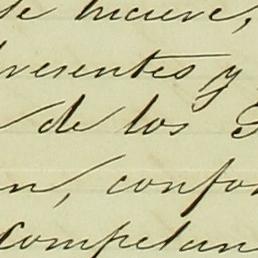 se hiciere,
presentes y
de los
n, confor
Competan